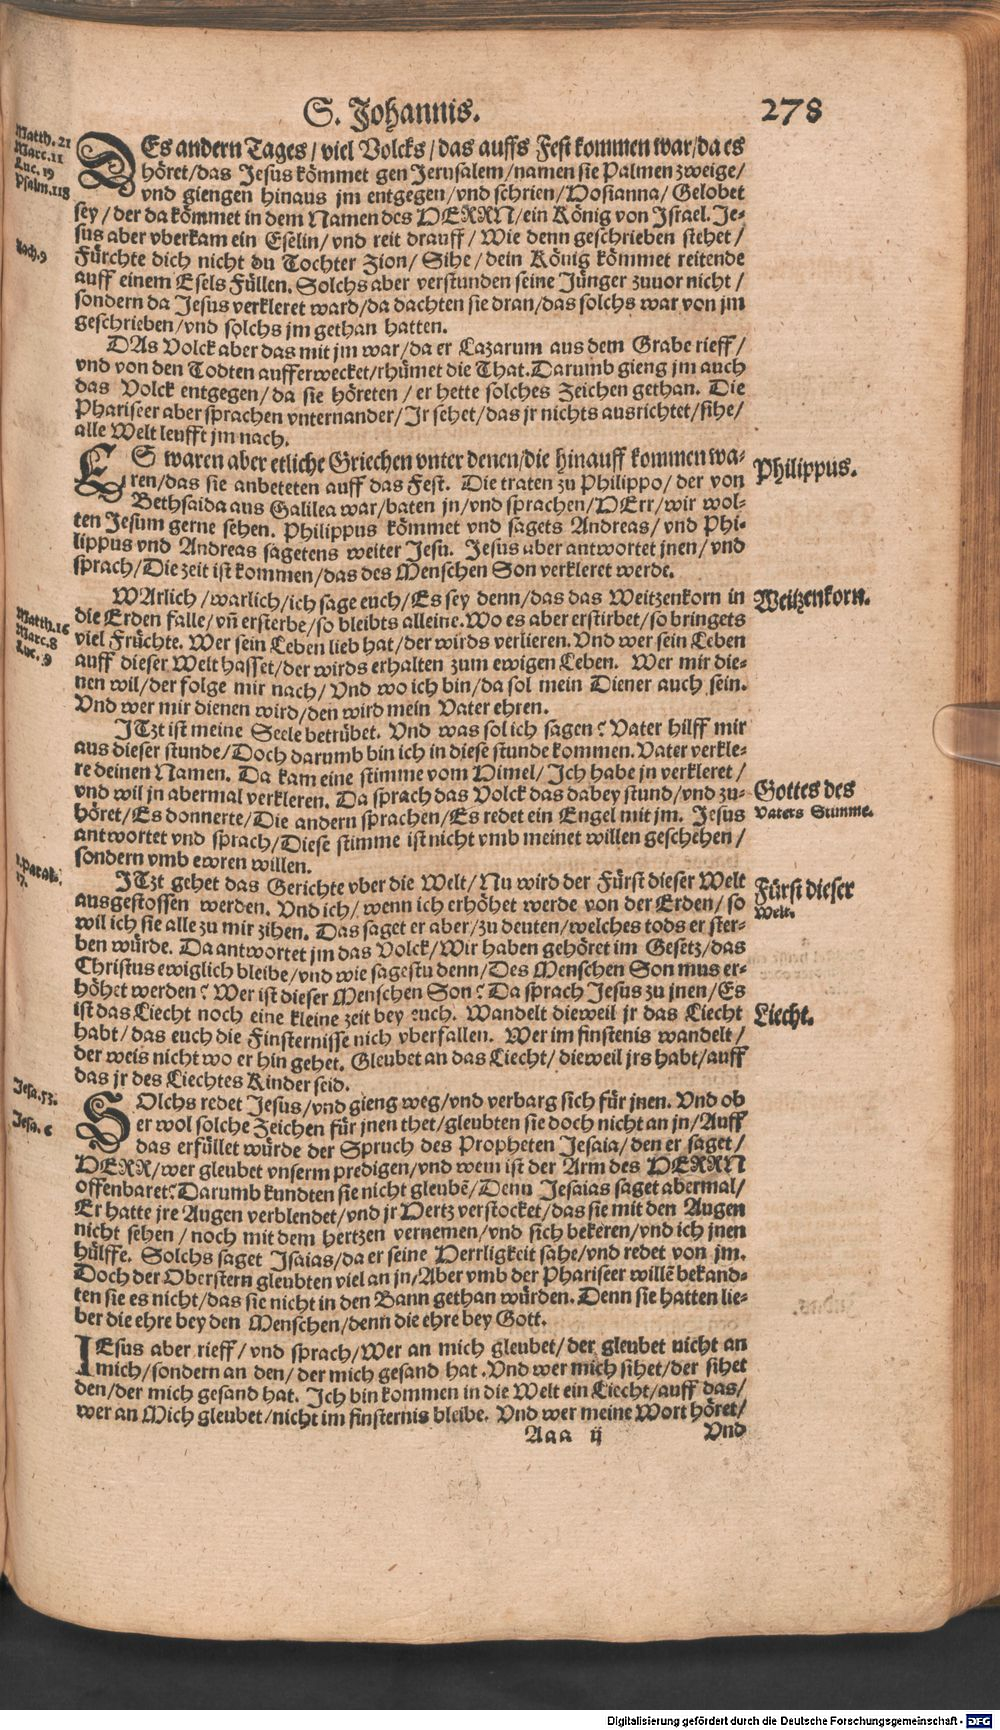 S. Johannis.
278
Matth. 21
Marc. 11
Luc. 19
Psalm. 118
DEs andern Tages / viel Volcks / das auffs Fest kommen war / da es
höret / das Jesus kömmet gen Jerusalem / namen sie Palmen zweige /
vnd giengen hinaus jm entgegen / vnd schrien / Hosianna / Gelobet
sey / der da kömmet in dem Namen des HERRN / ein König von Israel. Je-
sus aber vberkam ein Eselin / vnd reit drauff / Wie denn geschrieben stehet /
Zach. 9
Fürchte dich nicht du Tochter Zion / Sihe / dein König kömmet reitende
auff einem Esels Füllen. Solchs aber verstunden seine Jünger zuuor nicht /
sondern da Jesus verkleret ward / da dachten sie dran / das solchs war von jm
geschrieben / vnd solchs jm gethan hatten.
DAs Volck aber das mit jm war / da er Lazarum aus dem Grabe rieff /
vnd von den Todten aufferwecket / rhümet die That. Darumb gieng jm auch
das Volck entgegen / da sie höreten / er hette solches Zeichen gethan. Die
Phariseer aber sprachen vnternander / Jr sehet / das jr nichts ausrichtet / sihe /
alle Welt leufft jm nach.
ES waren aber etliche Griechen vnter denen / die hinauff kommen wa-
Philippus.
ren / das sie anbeteten auff das Fest. Die traten zu Philippo / der von
Bethsaida aus Galilea war / baten jn / vnd sprachen / HErr / wir wol-
ten Jesum gerne sehen. Philippus kömmet vnd sagets Andreas / vnd Phi-
lippus vnd Andreas sagetens weiter Jesu. Jesus aber antwortet jnen / vnd
sprach / Die zeit ist kommen / das des Menschen Son verkleret werde.
WArlich / warlich / ich sage euch / Es sey denn / das das Weitzenkorn in
Weitzenkorn.
Matth. 16
Marc. 8
Luc. 9
die Erden falle / vñ ersterbe / so bleibts alleine. Wo es aber erstirbet / so bringets
viel Früchte. Wer sein Leben lieb hat / der wirds verlieren. Vnd wer sein Leben
auff dieser Welt hasset / der wirds erhalten zum ewigen Leben. Wer mir die-
nen wil / der folge mir nach / Vnd wo ich bin / da sol mein Diener auch sein.
Vnd wer mir dienen wird / den wird mein Vater ehren.
JTzt ist meine Seele betrübet. Vnd was sol ich sagen? Vater hilff mir
aus dieser stunde / Doch darumb bin ich in diese stunde kommen. Vater verkle-
re deinen Namen. Da kam eine stimme vom Himel / Ich habe jn verkleret /
vnd wil jn abermal verkleren. Da sprach das Volck das dabey stund / vnd zu-
Gottes des
Vaters Stimme.
höret / Es donnerte / Die andern sprachen / Es redet ein Engel mit jm. Jesus
antwortet vnd sprach / Diese stimme ist nicht vmb meinet willen geschehen /
sondern vmb ewren willen.
JTzt gehet das Gerichte vber die Welt / Nu wird der Fürst dieser Welt
Fürst dieser
Welt.
ausgestossen werden. Vnd ich / wenn ich erhöhet werde von der Erden / so
wil ich sie alle zu mir zihen. Das saget er aber / zu deuten / welches tods er ster-
ben würde. Da antwortet jm das Volck / Wir haben gehöret im Gesetz / das
Christus ewiglich bleibe / vnd wie sagestu denn / Des Menschen Son mus er-
höhet werden? Wer ist dieser Menschen Son? Da sprach Jesus zu jnen / Es
ist das Liecht noch eine kleine zeit bey euch. Wandelt dieweil jr das Liecht
Liecht.
habt / das euch die Finsternisse nich vberfallen. Wer im finstenis wandelt /
der weis nicht wo er hin gehet. Gleubet an das Liecht / dieweil jrs habt / auff
das jr des Liechtes Kinder seid.
Jesa. 53.
Jesa. 6
SOlchs redet Jesus / vnd gieng weg / vnd verbarg sich für jnen. Vnd ob
er wol solche Zeichen für jnen thet / gleubten sie doch nicht an jn / Auff
das erfüllet würde der Spruch des Propheten Jesaia / den er saget /
HERR / wer gleubet vnserm predigen / vnd wem ist der Arm des HERRN
offenbaret? Darumb kundten sie nicht gleubē / Denn Jesaias saget abermal /
Er hatte jre Augen verblendet / vnd jr Hertz verstocket / das sie mit den Augen
nicht sehen / noch mit dem hertzen vernemen / vnd sich bekeren / vnd ich jnen
hülffe. Solchs saget Isaias / da er seine Herrligkeit sahe / vnd redet von jm.
Doch der Oberstern gleubten viel an jn / Aber vmb der Phariseer willē bekand-
ten sie es nicht / das sie nicht in den Bann gethan würden. Denn sie hatten lie-
ber die ehre bey den Menschen / denn die ehre bey Gott.
JEsus aber rieff / vnd sprach / Wer an mich gleubet / der gleubet nicht an
mich / sondern an den / der mich gesand hat. Vnd wer mich sihet / der sihet
den / der mich gesand hat. Ich bin kommen in die Welt ein Liecht / auff das /
wer an Mich gleubet / nicht im finsternis bleibe. Vnd wer meine Wort höret /
Aaa ij
Vnd
Digitalisierung gefördert durch die Deutsche Forschungsgemeinschaft - DFG